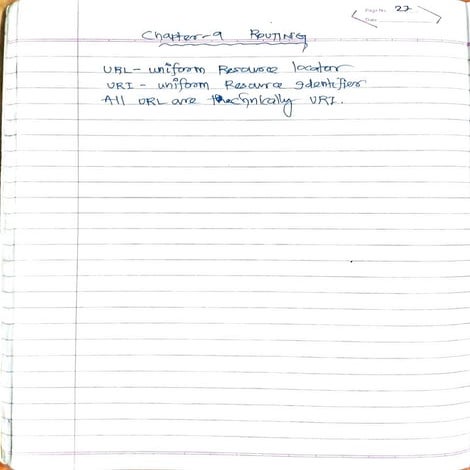 Page No. 27
Date
Chapter-9 ROUTING
URL - uniform Resource locator
URI - uniform Resource Identifier
All URL are technically URI.